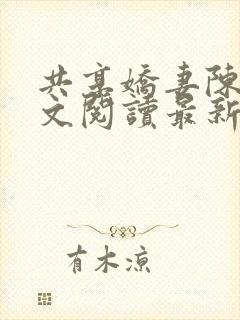 共享嬌妻陳
文閱讀最新
有木涼